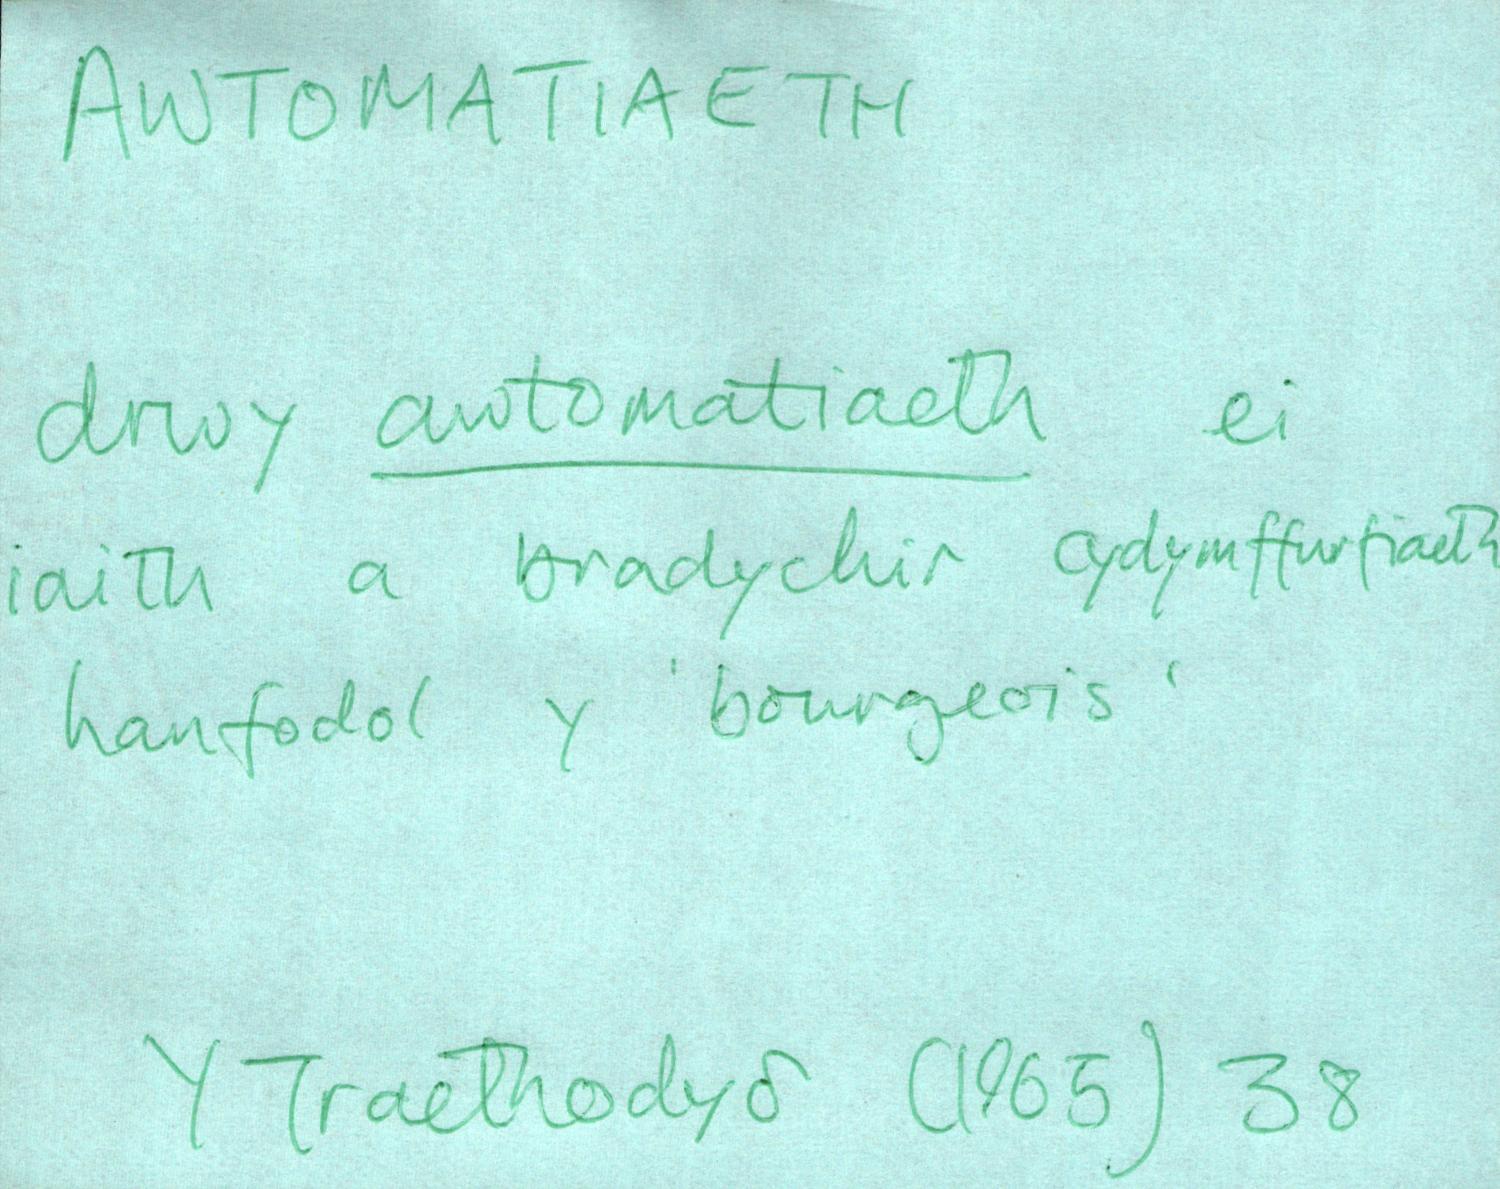 AWTOMATIAETH
drwy awtomatiaeth ei
iaith a bradychir cydymffurfiaeth
hanfodol y 'bourgeois'
Y Traethodydd (1965) 38